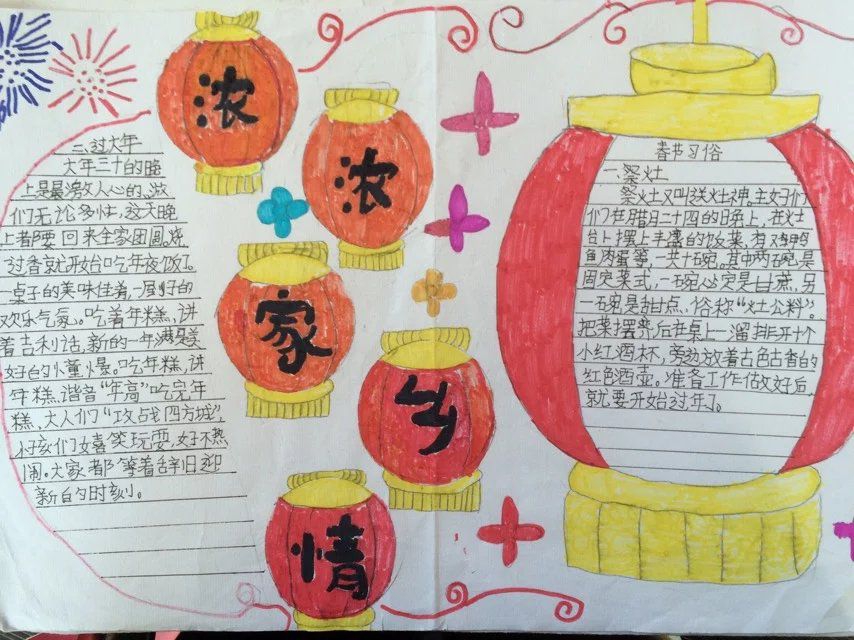 浓
浓
家
乡
情
二、过大年
大年三十的晚
上是最激动人心的。
们无论多忙，这天晚
上者都要回来全家团圆。烧
过香就开始吃年夜饭了。
一桌子的美味佳肴，一屋子的
欢乐气氛。吃着年糕，讲
着吉利话，新的一年满是美
好的憧憬。吃年糕，讲
年糕，谐音“年高”吃完年
糕，大人们“攻战四方城”，
小孩们嬉笑玩耍，好不热
闹。大家都等着辞旧迎
新的时刻。
春节习俗
一、祭灶
祭灶又叫送灶神。主妇们
们在腊月二十四的晚上，在灶
台上摆上丰盛的饭菜，有鸡鸭
鱼肉蛋等，一共十碗。其中两碗是
固定菜式，一碗必定是甘蔗，另
一碗是甜点，俗称“灶公料”。
把菜摆齐后在桌上一溜排开十个
小红酒杯，旁边放着古色古香的
红色酒壶。准备工作做好后，
就要开始过年了。